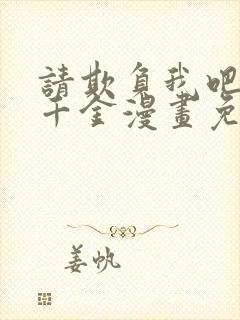 請欺負我吧
千金漫畫免
姜帆